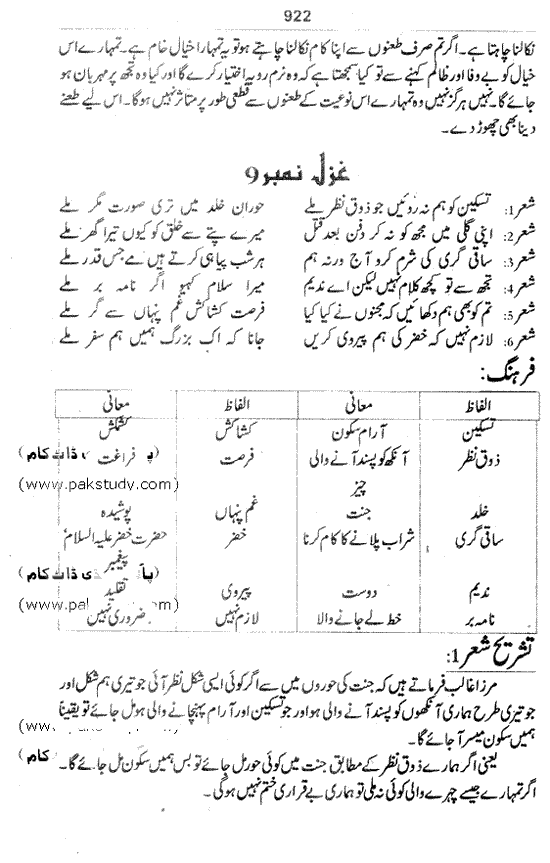 922
نکالنا چاہتا ہے۔ اگر تم صرف طعنوں سے اپنا کام نکالنا چاہتے ہو تو یہ تمہارا خیال خام ہے۔ تمہارے اس
خیال کو بے وفا اور ظالم کہنے سے تو کیا سمجھتا ہے کہ وہ نرم رویہ اختیار کرے گا اور کیا وہ تجھ پر مہربان ہو
جائے گا۔ نہیں ہرگز نہیں وہ تمہارے اس نوعیت کے طعنوں سے قطعی طور پر متاثر نہیں ہوگا۔ اس لیے طعنے
دینا بھی چھوڑ دے۔
غزل نمبر 9
شعر1: تسکین کو ہم نہ روئیں جو ذوق نظر ملے حوران خلد میں تری صورت مگر ملے
شعر2: اپنی گلی میں مجھ کو نہ کر دفن بعد قتل میرے پتے سے خلق کو کیوں تیرا گھر ملے
شعر3: ساقی گری کی شرم کرو آج ورنہ ہم ہر شب پیا ہی کرتے ہیں مے جس قدر ملے
شعر4: تجھ سے تو کچھ کلام نہیں لیکن اے ندیم میرا سلام کہیو اگر نامہ بر ملے
شعر5: تم کو بھی ہم دکھائیں کہ مجنوں نے کیا کیا فرصت کشاکش غم پنہاں سے گر ملے
شعر6: لازم نہیں کہ خضر کی ہم پیروی کریں جانا کہ اک بزرگ ہمیں ہم سفر ملے
فرہنگ:
الفاظ معانی الفاظ معانی
تسکین آرام سکون کشاکش کشمکش
ذوق نظر آنکھ کو پسند آنے والی فرصت فراغت ڈاٹ کام)
چیز (www.pakstudy.com)
خلد جنت غم پنہاں پوشیدہ
ساقی گری شراب پلانے کا کام کرنا خضر حضرت خضر علیہ السلام
پیغمبر ڈاٹ کام)
ندیم دوست پیروی تقلید
نامہ بر خط لے جانے والا لازم نہیں ضروری نہیں
تشریح شعر 1:
مرزا غالب فرماتے ہیں کہ جنت کی حوروں میں سے اگر کوئی ایسی شکل نظر آئی جو تیری ہم شکل اور
جو تیری طرح ہماری آنکھوں کو پسند آنے والی ہو اور جو تسکین اور آرام پہنچانے والی ہو مل جائے تو یقیناً
ہمیں سکون میسر آ جائے گا۔
یعنی اگر ہمارے ذوق نظر کے مطابق جنت میں کوئی حور مل جائے تو بس ہمیں سکون مل جائے گا۔ کام)
اگر تمہارے جیسے چہرے والی کوئی نہ ملی تو ہماری بے قراری ختم نہیں ہوگی۔